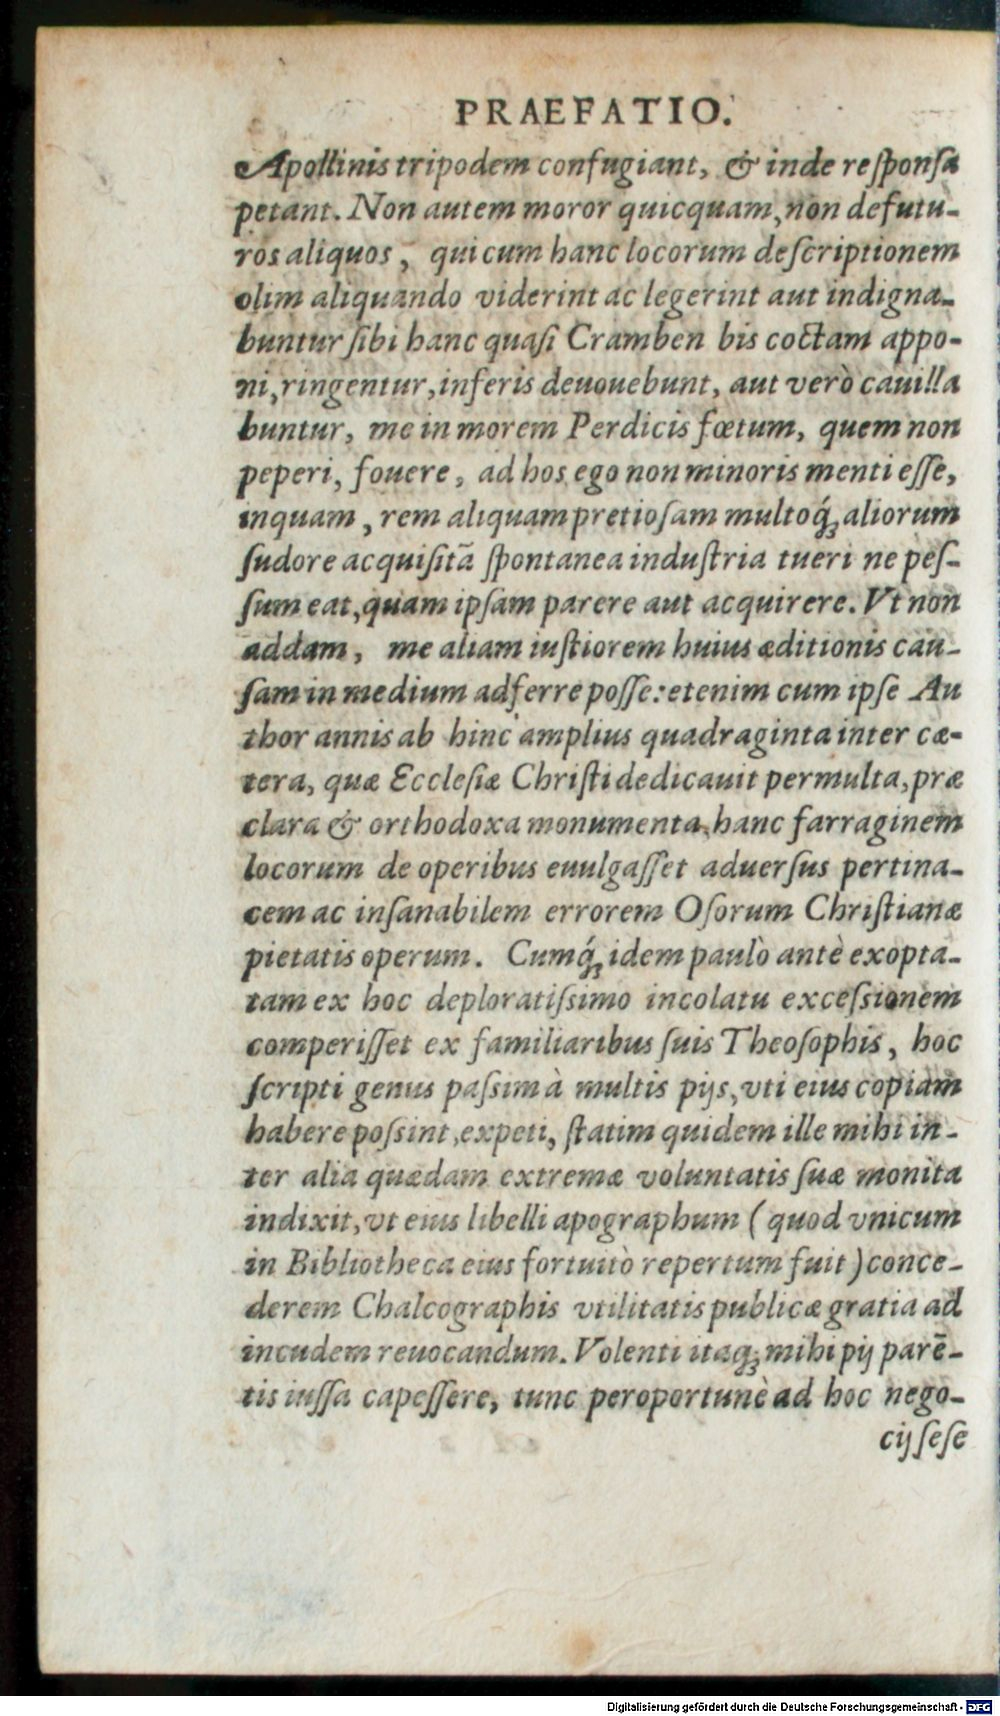 PRAEFATIO.
Apollinis tripodem confugiant, & inde reſponſa
petant. Non autem moror quicquam, non defutu-
ros aliquos, qui cum hanc locorum deſcriptionem
olim aliquando viderint ac legerint aut indigna-
buntur ſibi hanc quaſi Cramben bis coctam appo-
ni, ringentur, inferis deuouebunt, aut verò cauilla
buntur, me in morem Perdicis fœtum, quem non
peperi, fouere, ad hos ego non minoris menti eſſe,
inquam, rem aliquam pretioſam multoq́ꝫ aliorum
ſudore acquiſitã ſpontanea induſtria tueri ne peſ-
ſum eat, quam ipſam parere aut acquirere. Vt non
addam, me aliam iuſtiorem huius æditionis cau-
ſam in medium adferre poſſe: etenim cum ipſe Au
thor annis ab hinc amplius quadraginta inter cæ-
tera, quæ Eccleſiæ Chriſti dedicauit permulta, præ
clara & orthodoxa monumenta, hanc farraginem
locorum de operibus euulgaſſet aduerſus pertina-
cem ac inſanabilem errorem Oſorum Chriſtianæ
pietatis operum. Cumq́ꝫ idem paulò antè exopta-
tam ex hoc deploratiſsimo incolatu exceſsionem
comperiſſet ex familiaribus ſuis Theoſophis, hoc
ſcripti genus paſsim à multis pijs, vti eius copiam
habere poſsint, expeti, ſtatim quidem ille mihi in-
ter alia quædam extremæ voluntatis ſuæ monita
indixit, vt eius libelli apographum (quod vnicum
in Bibliotheca eius fortuitò repertum fuit) conce-
derem Chalcographis vtilitatis publicæ gratia ad
incudem reuocandum. Volenti itaqꝫ mihi pij parē-
tis iuſſa capeſſere, tunc peroportunè ad hoc nego-
cij ſeſe
Digitalisierung gefördert durch die Deutsche Forschungsgemeinschaft - DFG